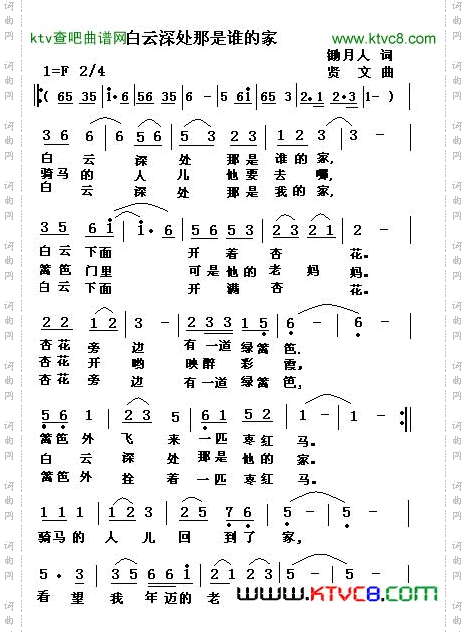 ktv查吧曲谱网 白云深处那是谁的家 www.ktvc8.com
锄月人 词
1=F 2/4 贤文 曲
( 65 35 | i·6 | 56 35 | 6 - | 5 6i | 65 3 | 2·1 2·3 | 1- )
3 6 6 | 6 5 6 | 5 3 2 3 | 1 2 3 | 2 - |
白云深处那是谁的家,
骑马的人儿他要去哪,
白云深处那是我的家,
3 5 6 i | i·6 | 5 6 5 3 | 2 3 2 1 | 2 - |
白云下面开着杏花。
篱笆门里可是他的老妈妈。
白云下面开满杏花。
2 2 1 2 | 2 - | 2 3 3 1 5 | 6 - | 6 - |
杏花旁边有一道绿篱笆.
杏花开哟映醉彩霞,
杏花旁边有一道绿篱笆.
5 6 1 | 2 3 | 5 - | 6 1 5 2 | 1 - | 1 - :|
篱笆外飞来一匹枣红马。
白云深处那是他的家。
篱笆外拴着一匹枣红马。
3 5 5 | 6 i 3 | 2 5 7 6 | 5 - | 5 - |
骑马的人儿回到了家,
5 · 3 | 2 3 5 | 6 6 i 5
看望我年迈的老
www.KTVC8.com
诃曲网
诃曲网
诃曲网
诃曲网
诃曲网
诃曲网